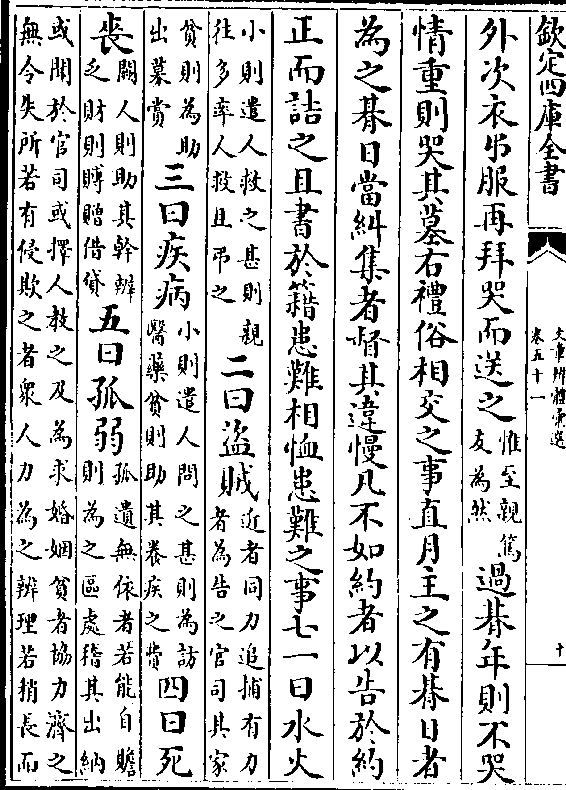 欽定四庫全書
文章辨體彙選
卷五十一
十
外次衣弔服再拜哭而送之惟至親篤友為然過朞年則不哭
情重則哭其墓右禮俗相交之事直月主之有朞日者
為之朞日當糾集者督其違慢凡不如約者以告於約
正而詰之且書於籍患難相恤患難之事七一曰水火
小則遣人救之甚則親往多率人救且弔之二曰盜賊近者同力追捕有力者為告之官司其家
貧則為助出募賞三曰疾病小則遣人問之甚則為訪醫藥貧則助其養疾之費四曰死
喪闕人則助其幹辦乏財則賻贈借貸五曰孤弱孤遺無依者若能自贍則為之區處稽其出納
或聞於官司或擇人教之及為求婚姻貧者協力濟之
無令失所若有侵欺之者衆人力為之辨理若稍長而